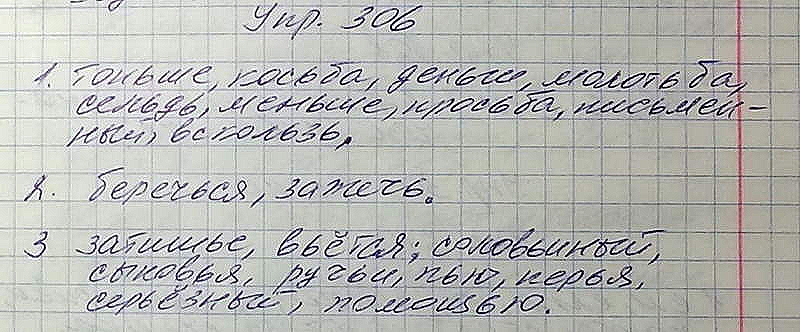 Упр. 306
1. тоньше, косьба, деньги, молотьба,
сельдь, меньше, просьба, письмен-
ный, вскользь.
2. беречься, зажечь.
3 затишье, вьётся, соловьиный,
сыновья, ручьи, пью, перья,
серьёзный, помощью.